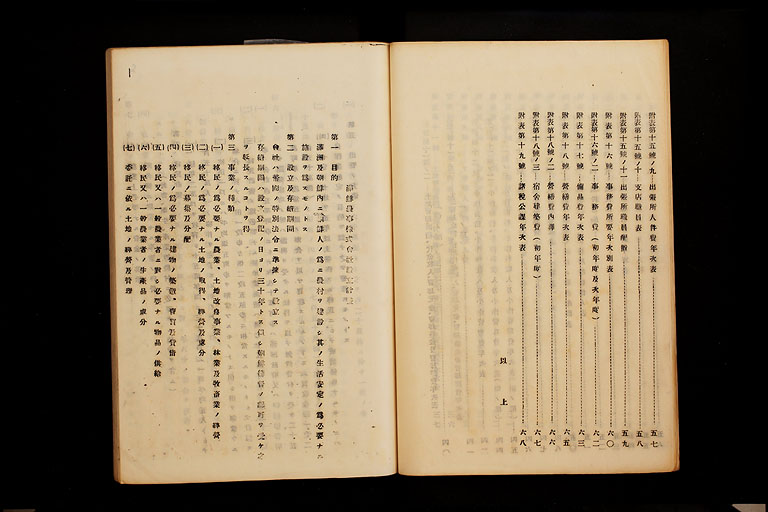 附表第十五號ノ九 出張所人件費年次表 五七
附表第十五號ノ十 支店職員表 五八
附表第十五號ノ十一 出張所職員配置 五九
附表第十六號 事務費所要年次別表 六〇
附表第十六號ノ二 事務費(初年度及次年度) 六二
附表第十七號 備品費年次表 六三
附表第十八號 營繕費年次表 六五
附表第十八號ノ二 營繕費內譯 六六
附表第十八號ノ三 宿舍建築費(初年度) 六七
附表第十九號 諸稅公課年次表 六八
以上
鮮農股事株式會社設立計畫
第一 目的
滿洲及朝鮮內ニ朝鮮人ノ爲ニ農村ヲ建設シ其ノ生活安定ノ爲必要ナル
施設ヲ爲スモノトス
第二 設立及存續期間
會社ハ帝國ノ特別法令ニ準據シテ設立ス
存續期間ハ設立登記ノ日ヨリ三十年トス但シ朝鮮總督ノ認可ヲ受ケ之
ヲ延長スルコトヲ得
第三 事業ノ種類
(一) 移民ノ爲必要ナル農業、土地改良事業、林業及牧畜業ノ經營
(二) 移民ノ爲必要ナル土地ノ取得、經營及處分
(三) 移民ノ募集及分配
(四) 移民ノ爲必要ナル建物ノ築造、賣買及貸借
(五) 移民又ハ一般農業者ニ對シ必要ナル物品ノ供給
(六) 移民又ハ一般農業者ノ生產品ノ處分
(七) 委託ニ依ル土地ノ經營及管理
一